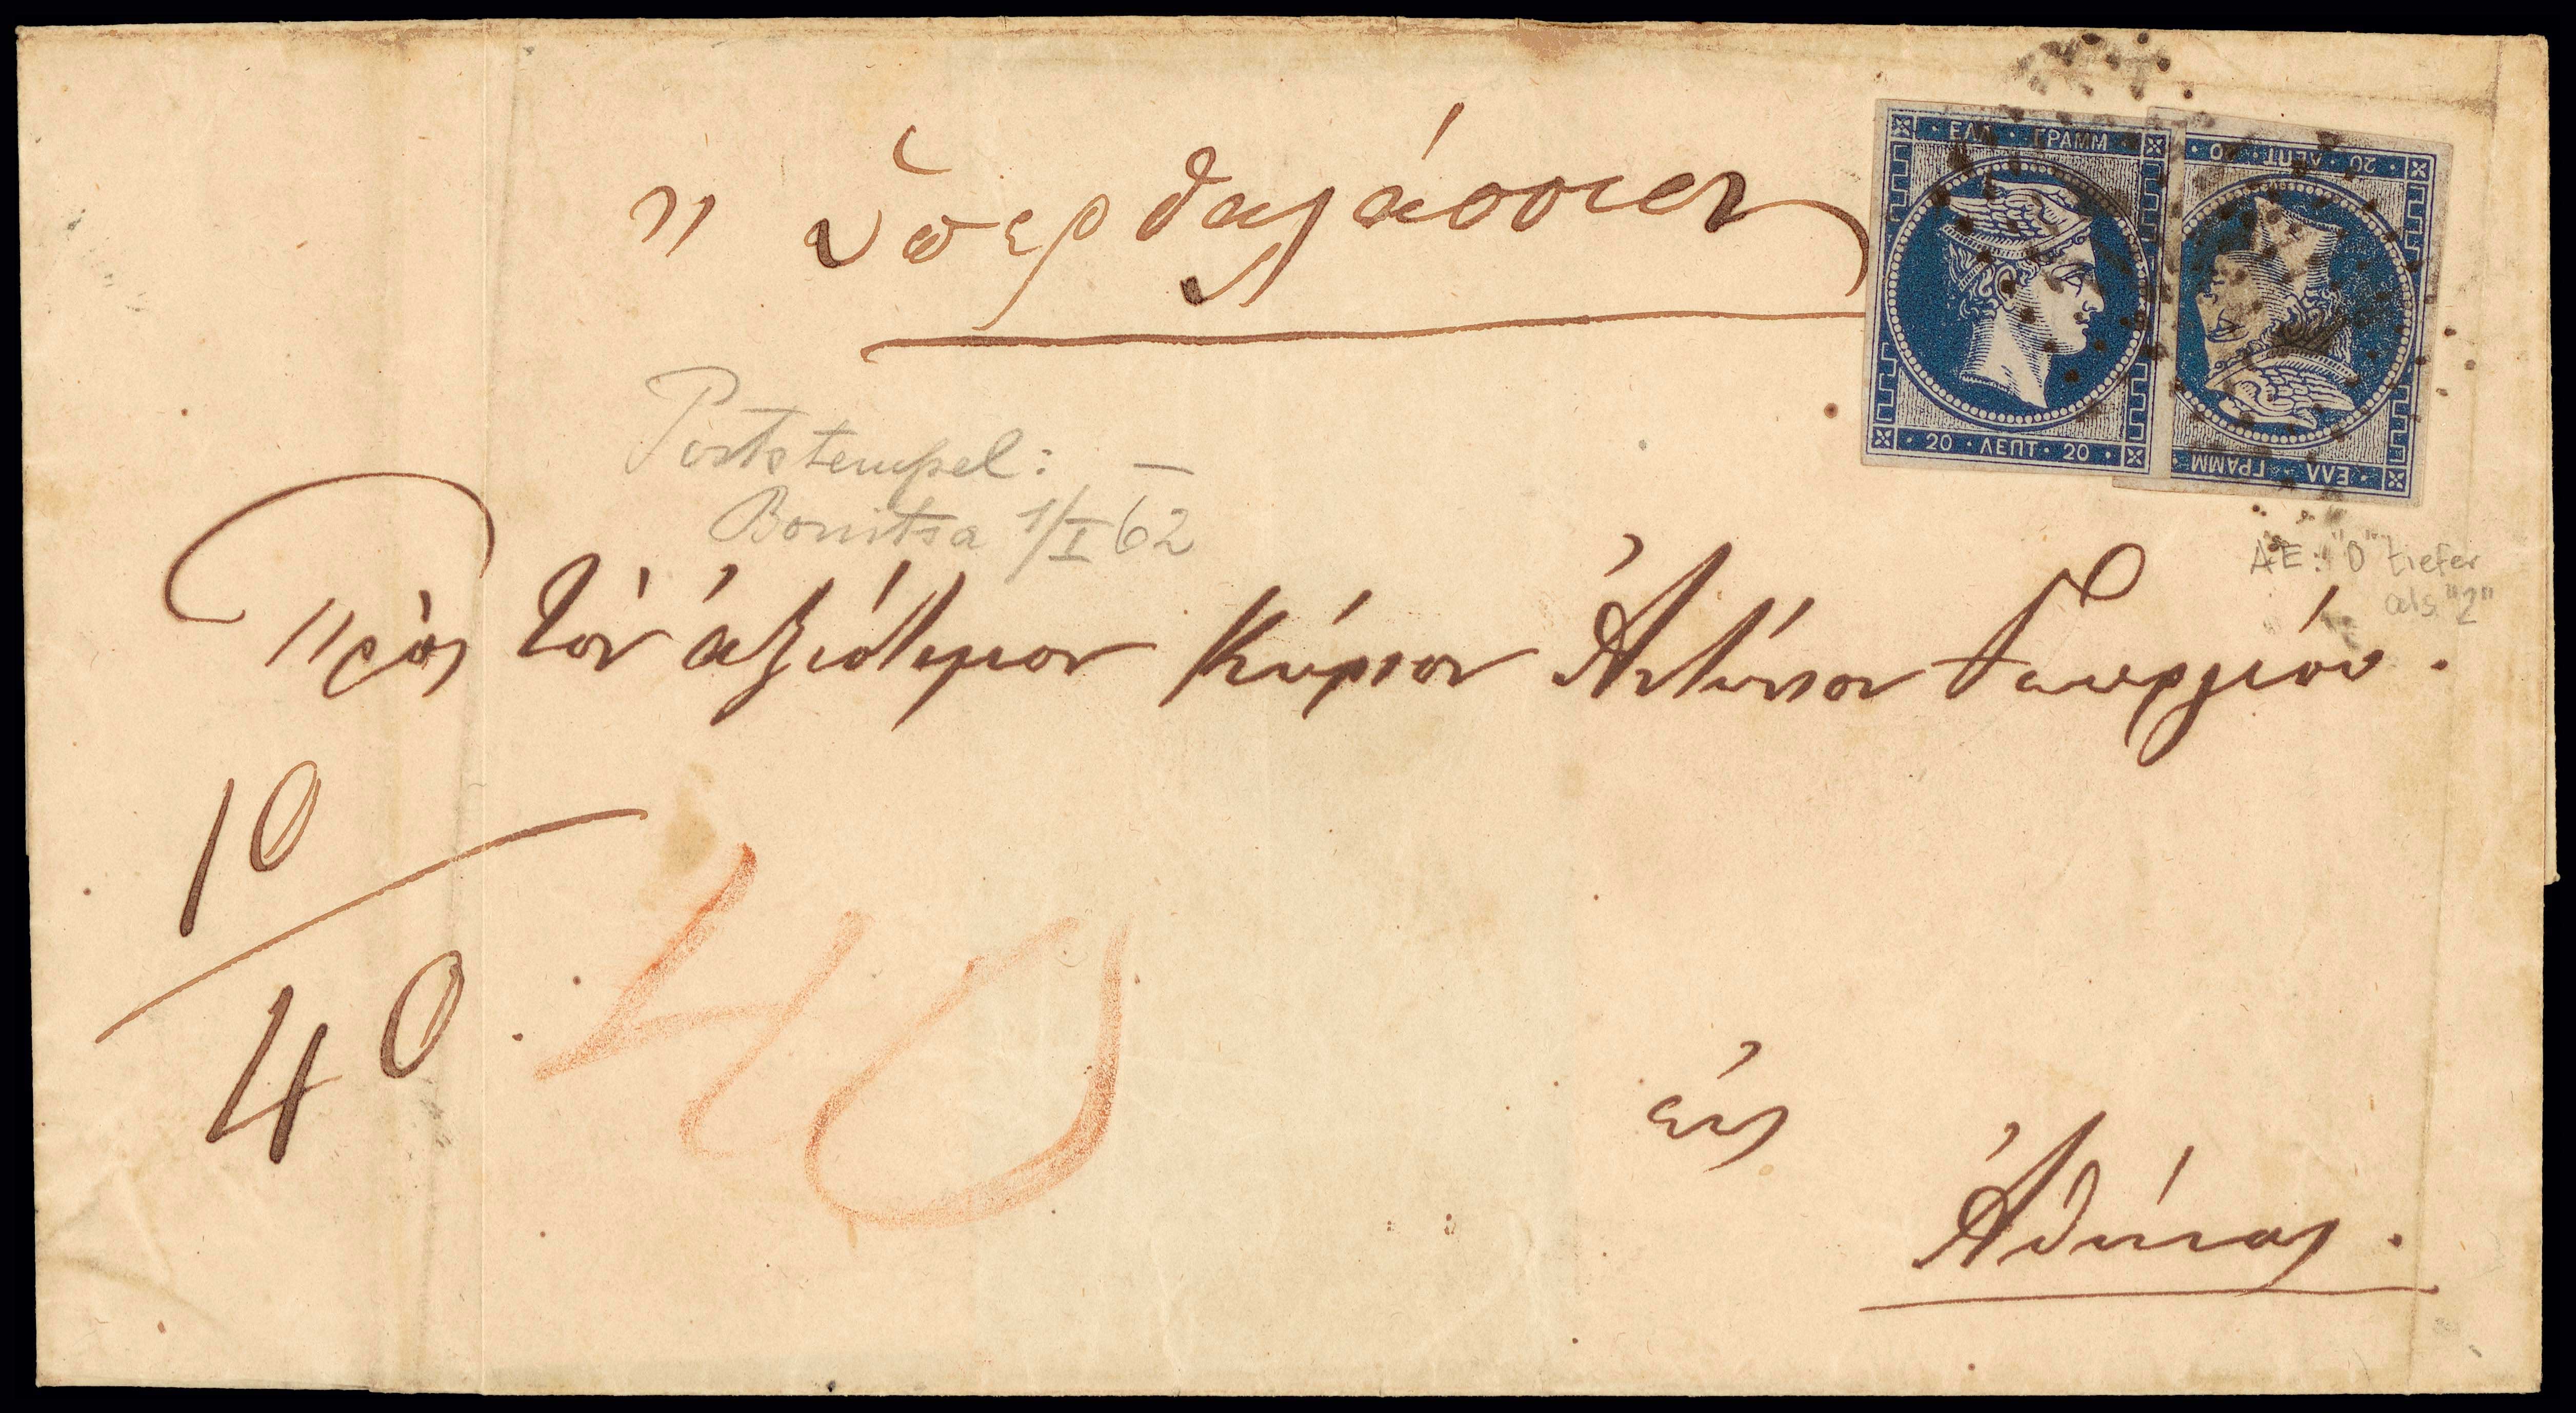 „ ὑπερθαλάσσιον
ΕΛΛ · ΓΡΑΜΜ
20 · ΛΕΠΤ · 20
20 · ΛΕΠΤ · 20
ΕΛΛ · ΓΡΑΜΜ
Poststempel: —
Bonitsa 1/I 62
AE: "0" tiefer
als "2"
Πρὸς τὸν ἀξιότιμον Κύριον Ἀντώνιον Γεωργίου.
10
40
40
εἰς
Ἀθήνας.